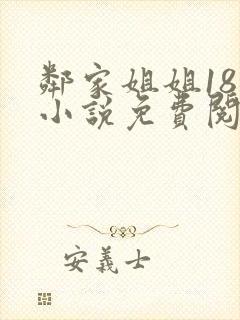 鄰家姐姐18
小說免費閱
安義士